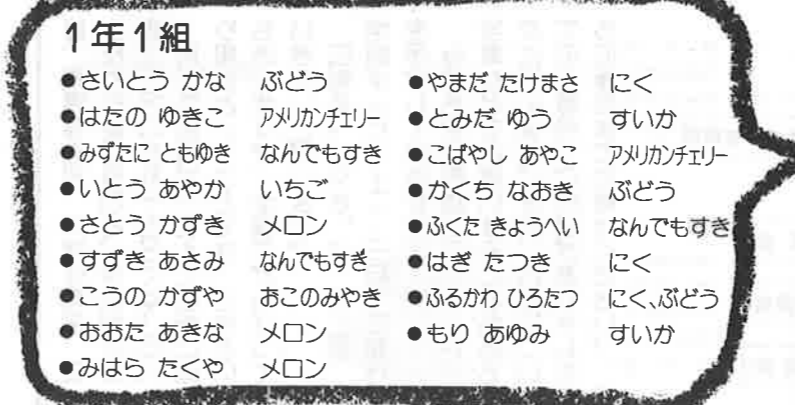 1年1組
●さいとう かな ぶどう
●はたの ゆきこ アメリカンチェリー
●みずたに ともゆき なんでもすき
●いとう あやか いちご
●さとう かずき メロン
●すずき あさみ なんでもすき
●こうの かずや おこのみやき
●おおた あきな メロン
●みはら たくや メロン
●やまだ たけまさ にく
●とみだ ゆう すいか
●こばやし あやこ アメリカンチェリー
●かくち なおき ぶどう
●ふくた きょうへい なんでもすき
●はぎ たつき にく
●ふるかわ ひろたつ にく、ぶどう
●もり あゆみ すいか